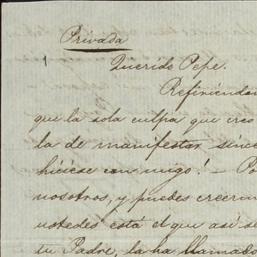 Privada
1
Querido Pepe.
Refiriendo
que la sola culpa que creo
la de manifestar since
hiciese con migo! - Po
nosotros, y puedes creerm
ustedes está el que así se
tu Padre, la ha llamado